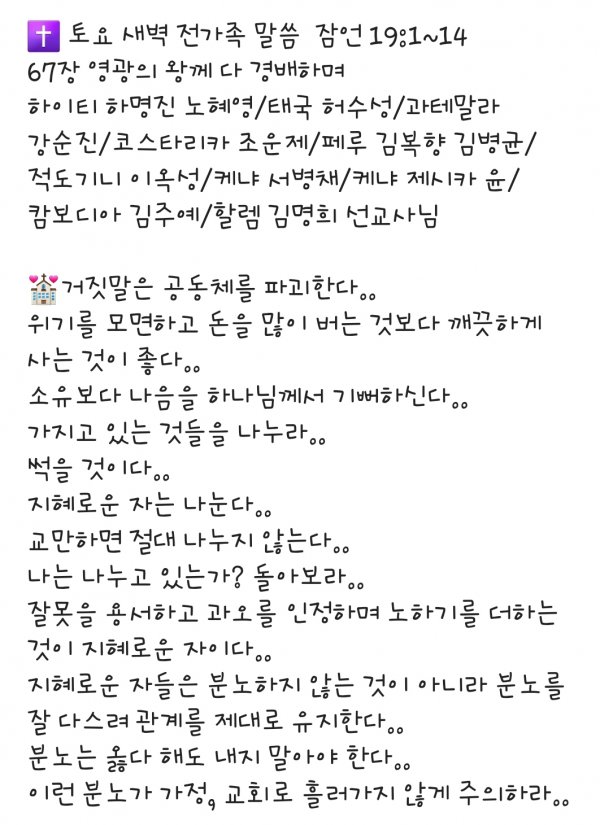 ✝️ 토요 새벽 전가족 말씀 잠언 19:1~14
67장 영광의 왕께 다 경배하며
하이티 하명진 노혜영/태국 허수성/과테말라
강순진/코스타리카 조운제/페루 김복향 김병균/
적도기니 이옥성/케냐 서병채/케냐 제시카 윤/
캄보디아 김주예/할렘 김명희 선교사님
💒거짓말은 공동체를 파괴한다..
위기를 모면하고 돈을 많이 버는 것보다 깨끗하게
사는 것이 좋다..
소유보다 나음을 하나님께서 기뻐하신다..
가지고 있는 것들을 나누라..
썩을 것이다..
지혜로운 자는 나눈다..
교만하면 절대 나누지 않는다..
나는 나누고 있는가? 돌아보라..
잘못을 용서하고 과오를 인정하며 노하기를 더하는
것이 지혜로운 자이다..
지혜로운 자들은 분노하지 않는 것이 아니라 분노를
잘 다스려 관계를 제대로 유지한다..
분노는 옳다 해도 내지 말아야 한다..
이런 분노가 가정, 교회로 흘러가지 않게 주의하라..